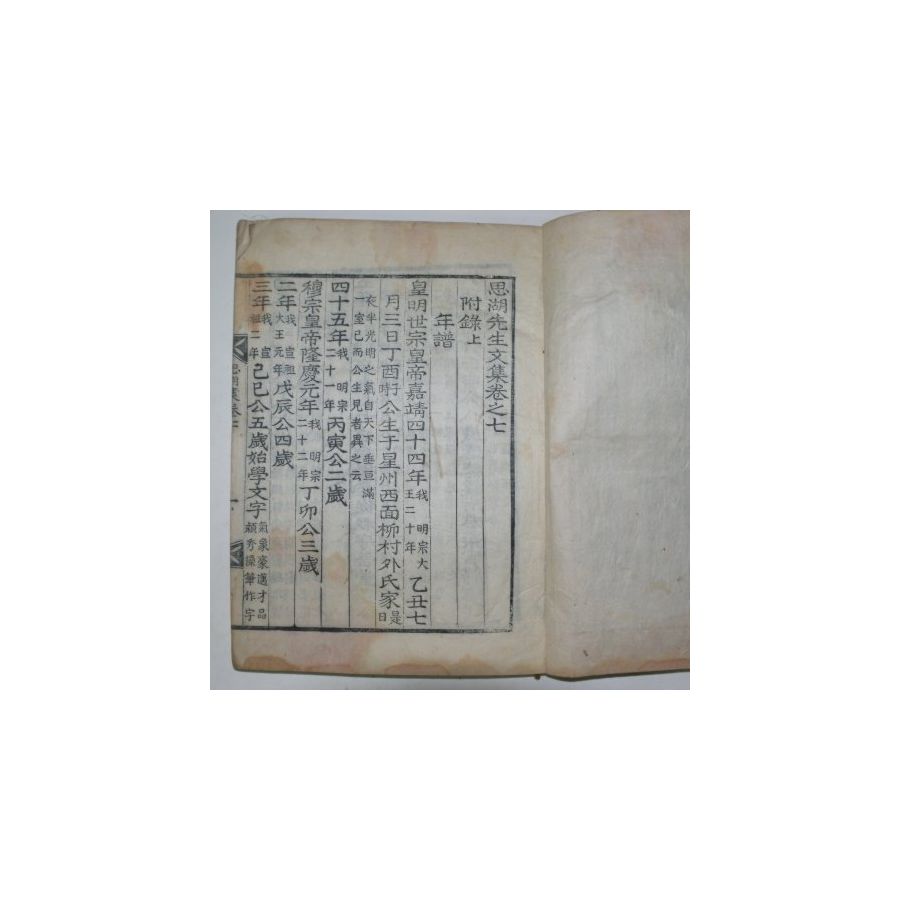 思湖先生文集卷之七
附錄上
年譜
皇明世宗皇帝嘉靖四十四年我明宗大王二十年乙丑七
月三日丁酉子時公生于星州西面柳村外氏家是日
夜半光明之氣自天下垂亘滿一室已而公生見者異之云
四十五年我明宗二十一年丙寅公二歲
穆宗皇帝隆慶元年我明宗二十二年丁卯公三歲
二年我宣祖大王元年戊辰公四歲
三年我宣祖二年己巳公五歲始學文字氣象豪邁才品頴秀操筆作字